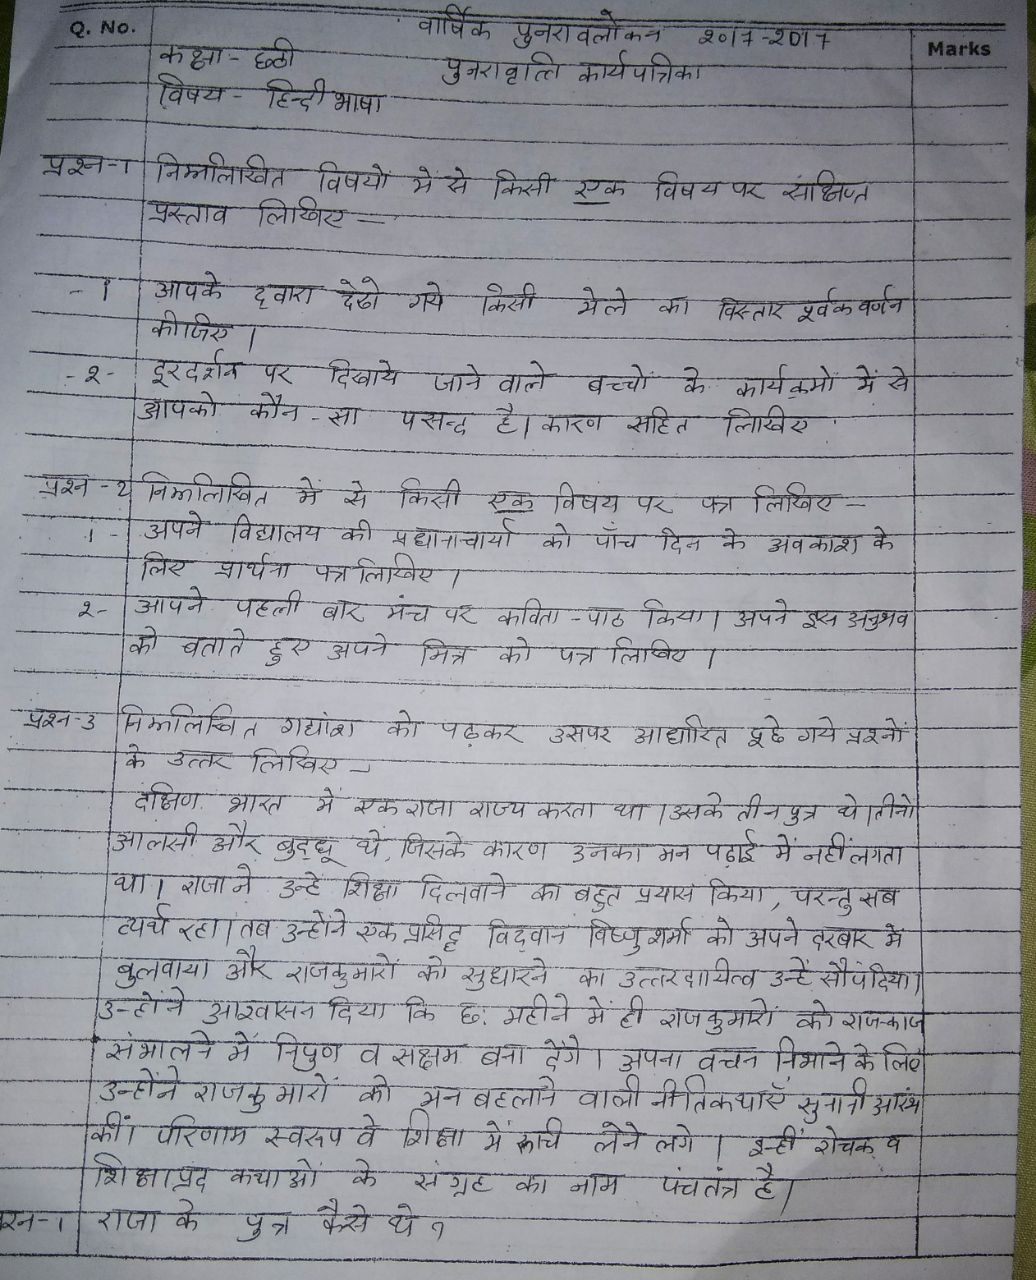 Q. No.
वार्षिक पुनरावलोकन २०17-२017
Marks
कक्षा - छठी
पुनरावृत्ति कार्यपत्रिका
विषय - हिन्दी भाषा
प्रश्न-1 निम्नलिखित विषयों में से किसी एक विषय पर संक्षिप्त
प्रस्ताव लिखिए —
- 1 आपके द्वारा देखे गये किसी मेले का विस्तार पूर्वक वर्णन
कीजिए ।
- २ - दूरदर्शन पर दिखाये जाने वाले बच्चों के कार्यक्रमों में से
आपको कौन - सा पसन्द है। कारण सहित लिखिए
प्रश्न - 2 निम्नलिखित में से किसी एक विषय पर पत्र लिखिए —
1 - अपने विद्यालय की प्रधानाचार्या को पाँच दिन के अवकाश के
लिए प्रार्थना पत्र लिखिए ।
२ - आपने पहली बार मंच पर कविता - पाठ किया। अपने इस अनुभव
को बताते हुए अपने मित्र को पत्र लिखिए ।
प्रश्न-3 निम्नलिखित गद्यांश को पढ़कर उसपर आधारित पूछे गये प्रश्नों
के उत्तर लिखिए —
दक्षिण भारत में एक राजा राज्य करता था । उसके तीन पुत्र थे । तीनों
आलसी और बुद्धू थे, जिसके कारण उनका मन पढ़ाई में नहीं लगता
था । राजा ने उन्हें शिक्षा दिलवाने का बहुत प्रयास किया, परन्तु सब
व्यर्थ रहा । तब उन्होंने एक प्रसिद्ध विद्वान विष्णु शर्मा को अपने दरबार में
बुलवाया और राजकुमारों को सुधारने का उत्तरदायित्व उन्हें सौंप दिया।
उन्होंने आश्वासन दिया कि छः महीने में ही राजकुमारों को राज-काज
संभालने में निपुण व सक्षम बना देंगे । अपना वचन निभाने के लिए
उन्होंने राजकुमारों को मन बहलाने वाली नीतिकथाएँ सुनानी आरंभ
कीं। परिणाम स्वरूप वे शिक्षा में रूची लेने लगे । इन्हीं रोचक व
शिक्षाप्रद कथाओं के संग्रह का नाम पंचतंत्र है।
प्रश्न-1 राजा के पुत्र कैसे थे ?